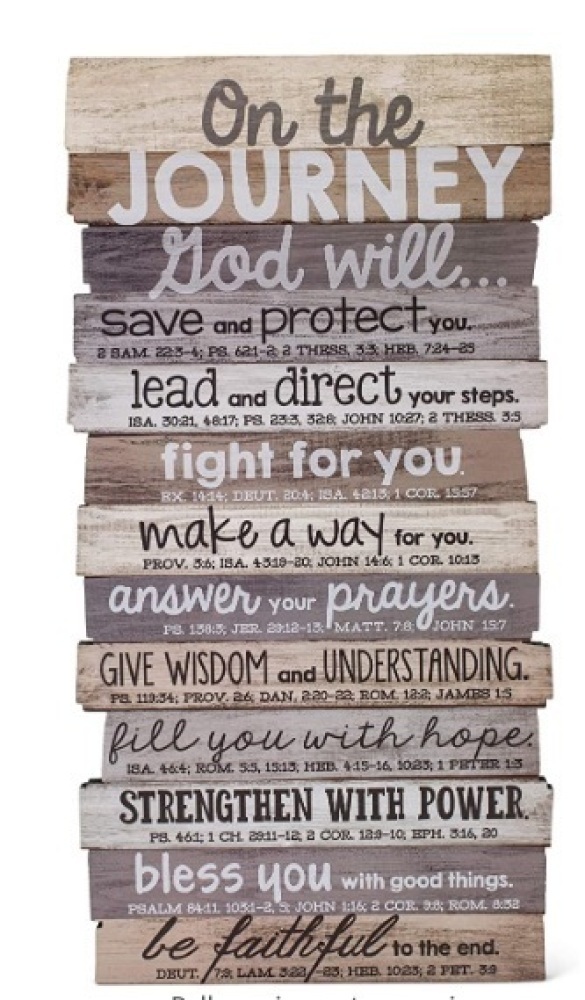 On the
JOURNEY
God will...
save and protect you.
2 SAM. 22:3-4; PS. 62:1-2; 2 THESS. 3:3; HEB. 7:24-25
lead and direct your steps.
ISA. 30:21, 48:17; PS. 23:3, 32:8; JOHN 10:27; 2 THESS. 3:5
fight for you.
EX. 14:14; DEUT. 20:4; ISA. 42:13; 1 COR. 15:57
make a way for you.
PROV. 3:6; ISA. 43:19-20; JOHN 14:6; 1 COR. 10:13
answer your prayers.
PS. 138:3; JER. 29:12-13; MATT. 7:8; JOHN 15:7
GIVE WISDOM and UNDERSTANDING.
PS. 119:34; PROV. 2:6; DAN. 2:20-22; ROM. 12:2; JAMES 1:5
fill you with hope.
ISA. 46:4; ROM. 5:5, 15:13; HEB. 4:15-16, 10:23; 1 PETER 1:3
STRENGTHEN WITH POWER.
PS. 46:1; 1 CH. 29:11-12; 2 COR. 12:9-10; EPH. 3:16, 20
bless you with good things.
PSALM 84:11, 103:1-2, 5; JOHN 1:16; 2 COR. 9:8; ROM. 8:32
be faithful to the end.
DEUT. 7:9; LAM. 3:22-23; HEB. 10:23; 2 PET. 3:9